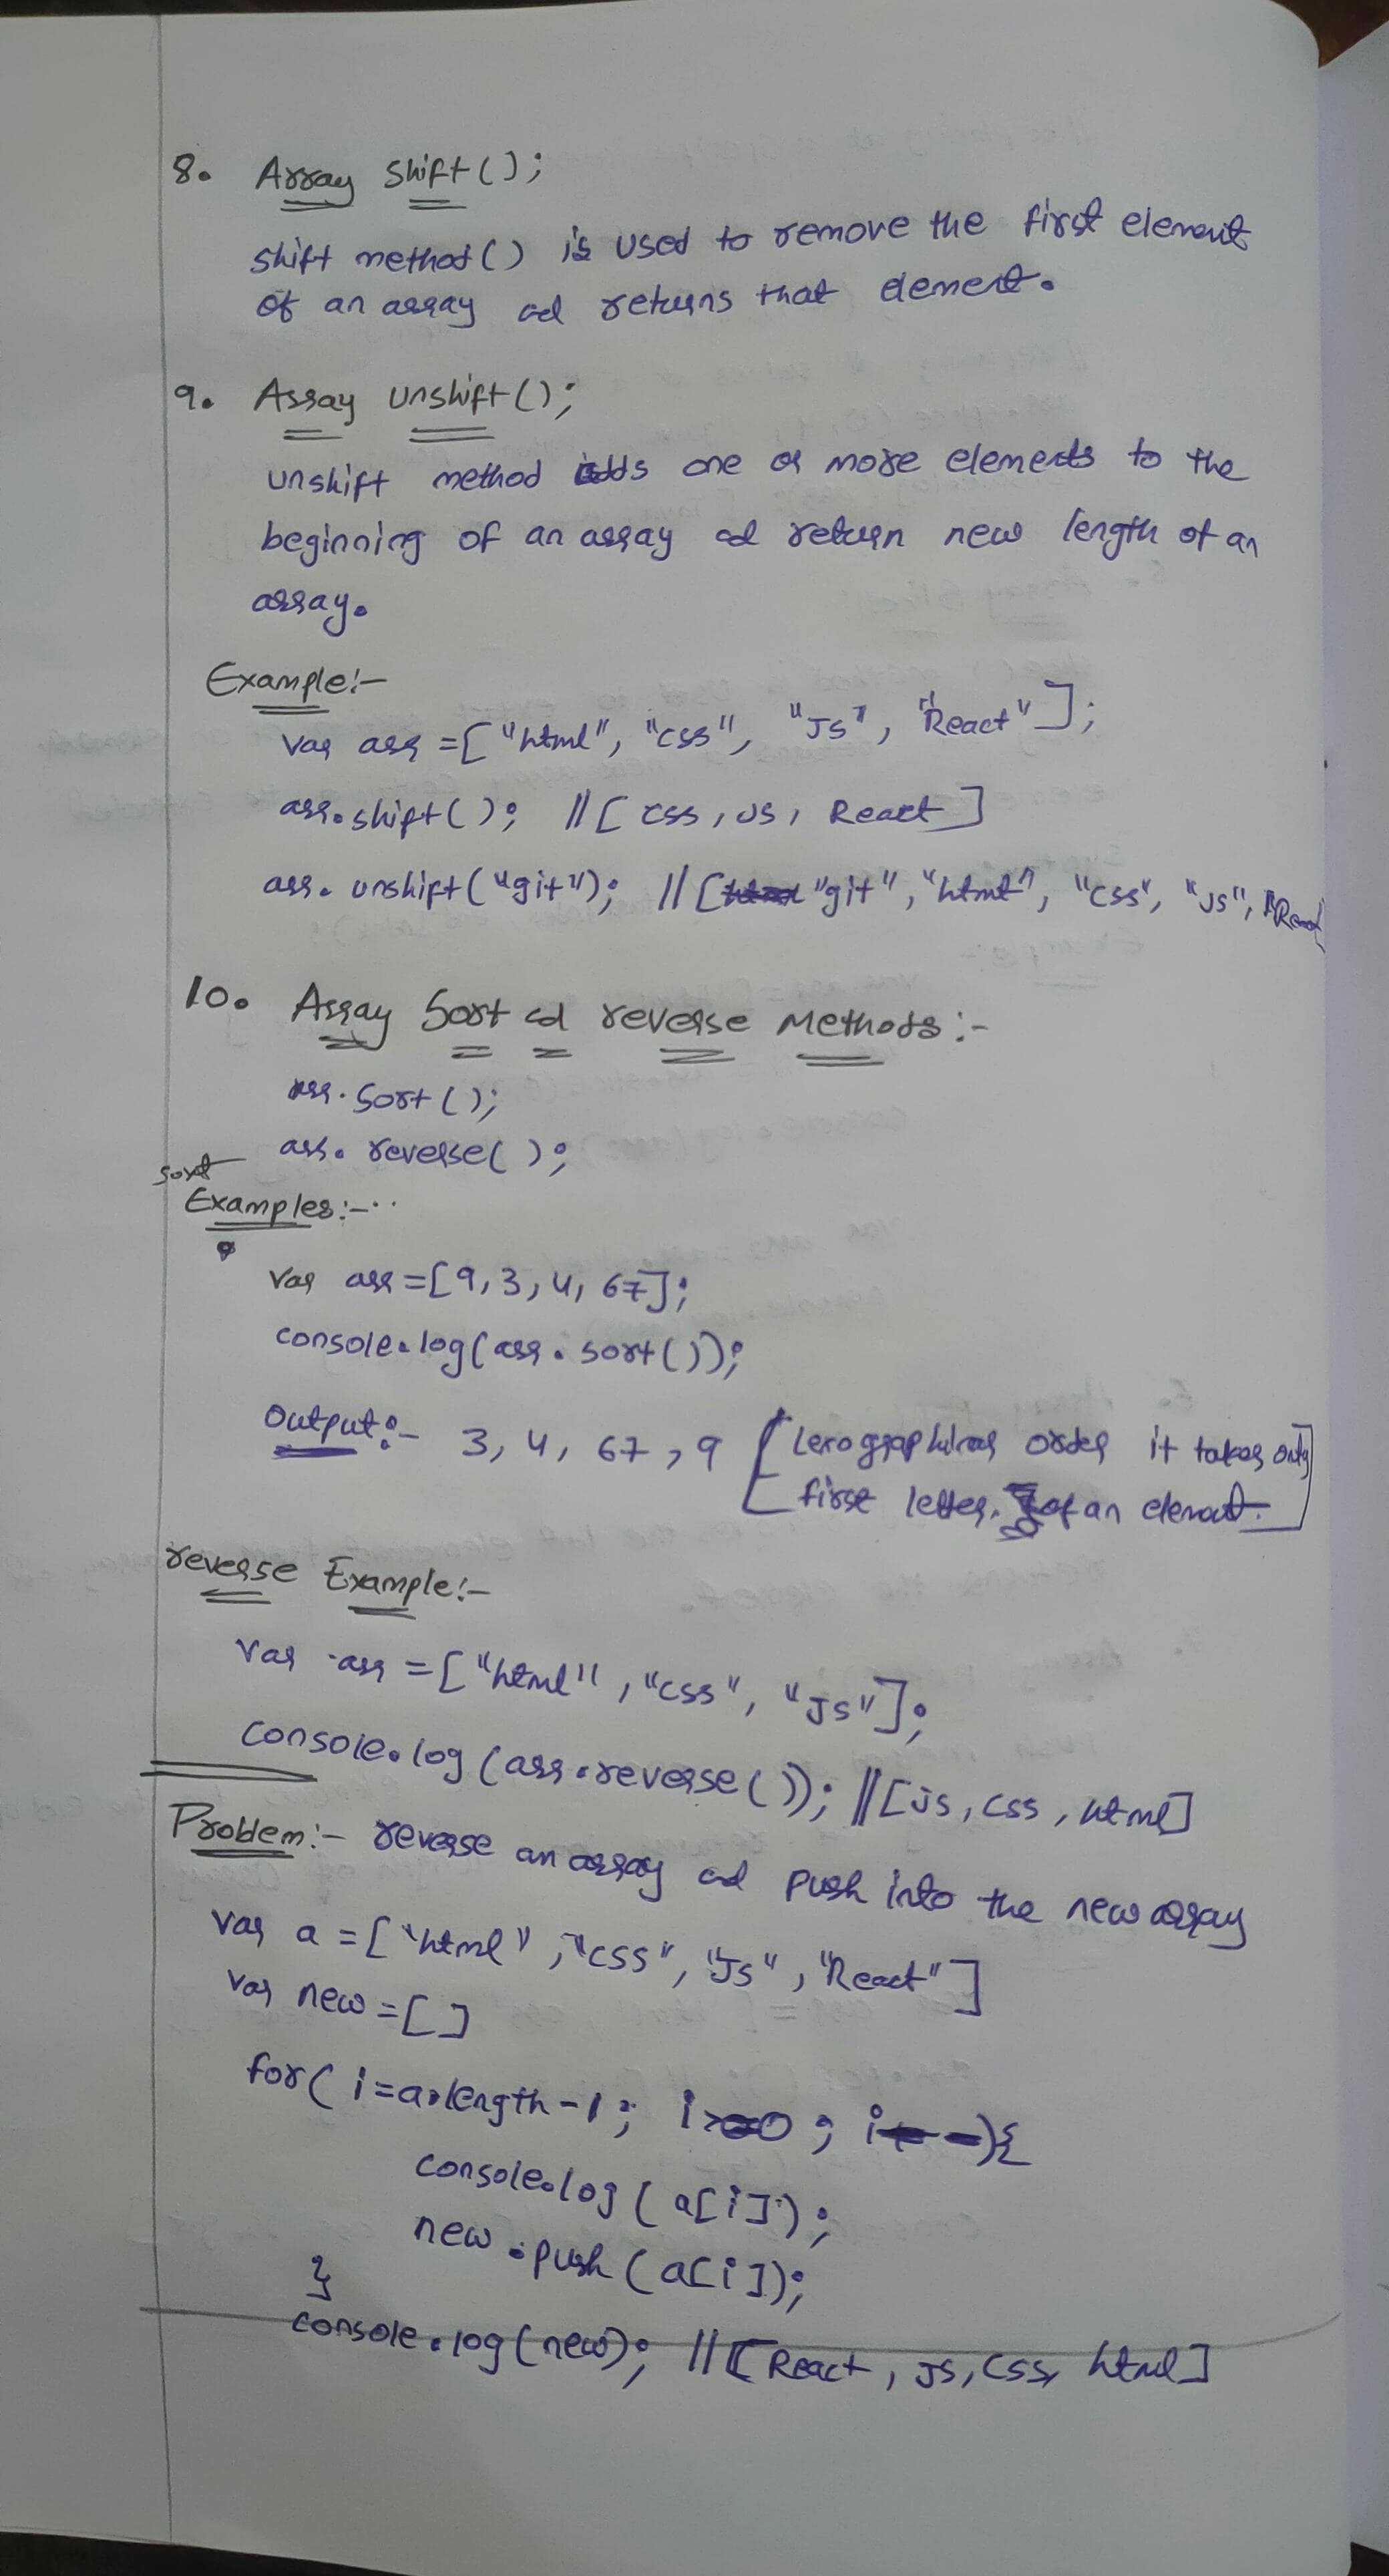 8. Array shift();
shift method() is used to remove the first element
of an array ad returns that element.
9. Array unshift();
unshift method adds one or more elements to the
beginning of an array ad return new length of an
array.
Example:-
var arr = ["html", "css", "Js", "React"];
arr.shift(); //[css, JS, React]
arr.unshift("git"); //["git", "html", "css", "JS", "React
10. Array Sort ad reverse Methods:-
arr.sort();
arr.reverse();
sort
Examples:-
var arr = [9, 3, 4, 67];
console.log(arr.sort());
Output:- 3, 4, 67, 9 [ order it takes only
first letter of an element.]
reverse Example:-
var arr = ["html", "css", "Js"];
console.log(arr.reverse()); //[js, css, html]
Problem:- reverse an array ad push into the new array
var a = ["html", "css", "Js", "React"]
var new = []
for(i=a.length-1; i>=0; i--){
console.log(a[i]);
new.push(a[i]);
}
console.log(new); //[React, JS, CSS, html]